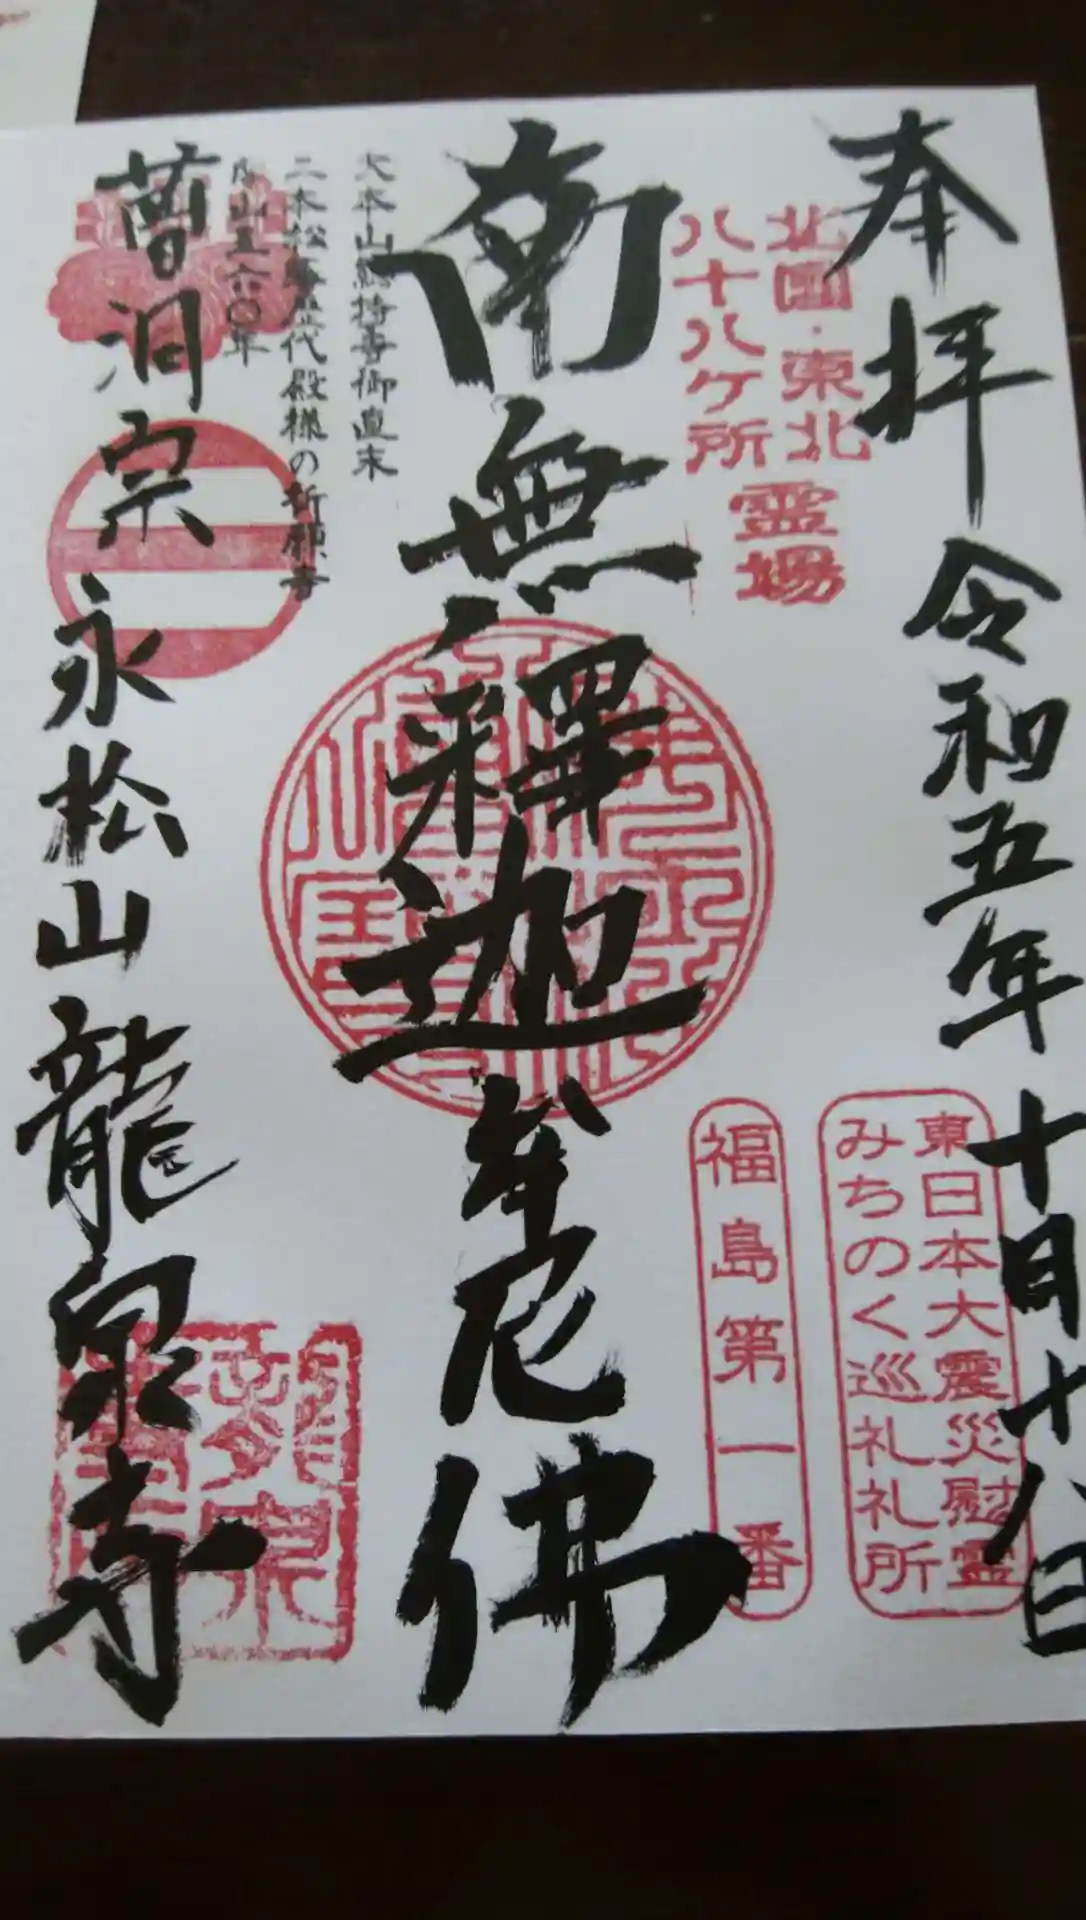 奉拝 令和五年十月十八日
北国・東北
八十八ケ所
霊場
東日本大震災慰霊
みちのく巡礼札所
福島第一番
南無釋迦牟尼佛
大本山總持寺御直末
二本松藩歴代殿様の祈願寺
開山五六〇年
曹洞宗 永松山龍泉寺
龍泉